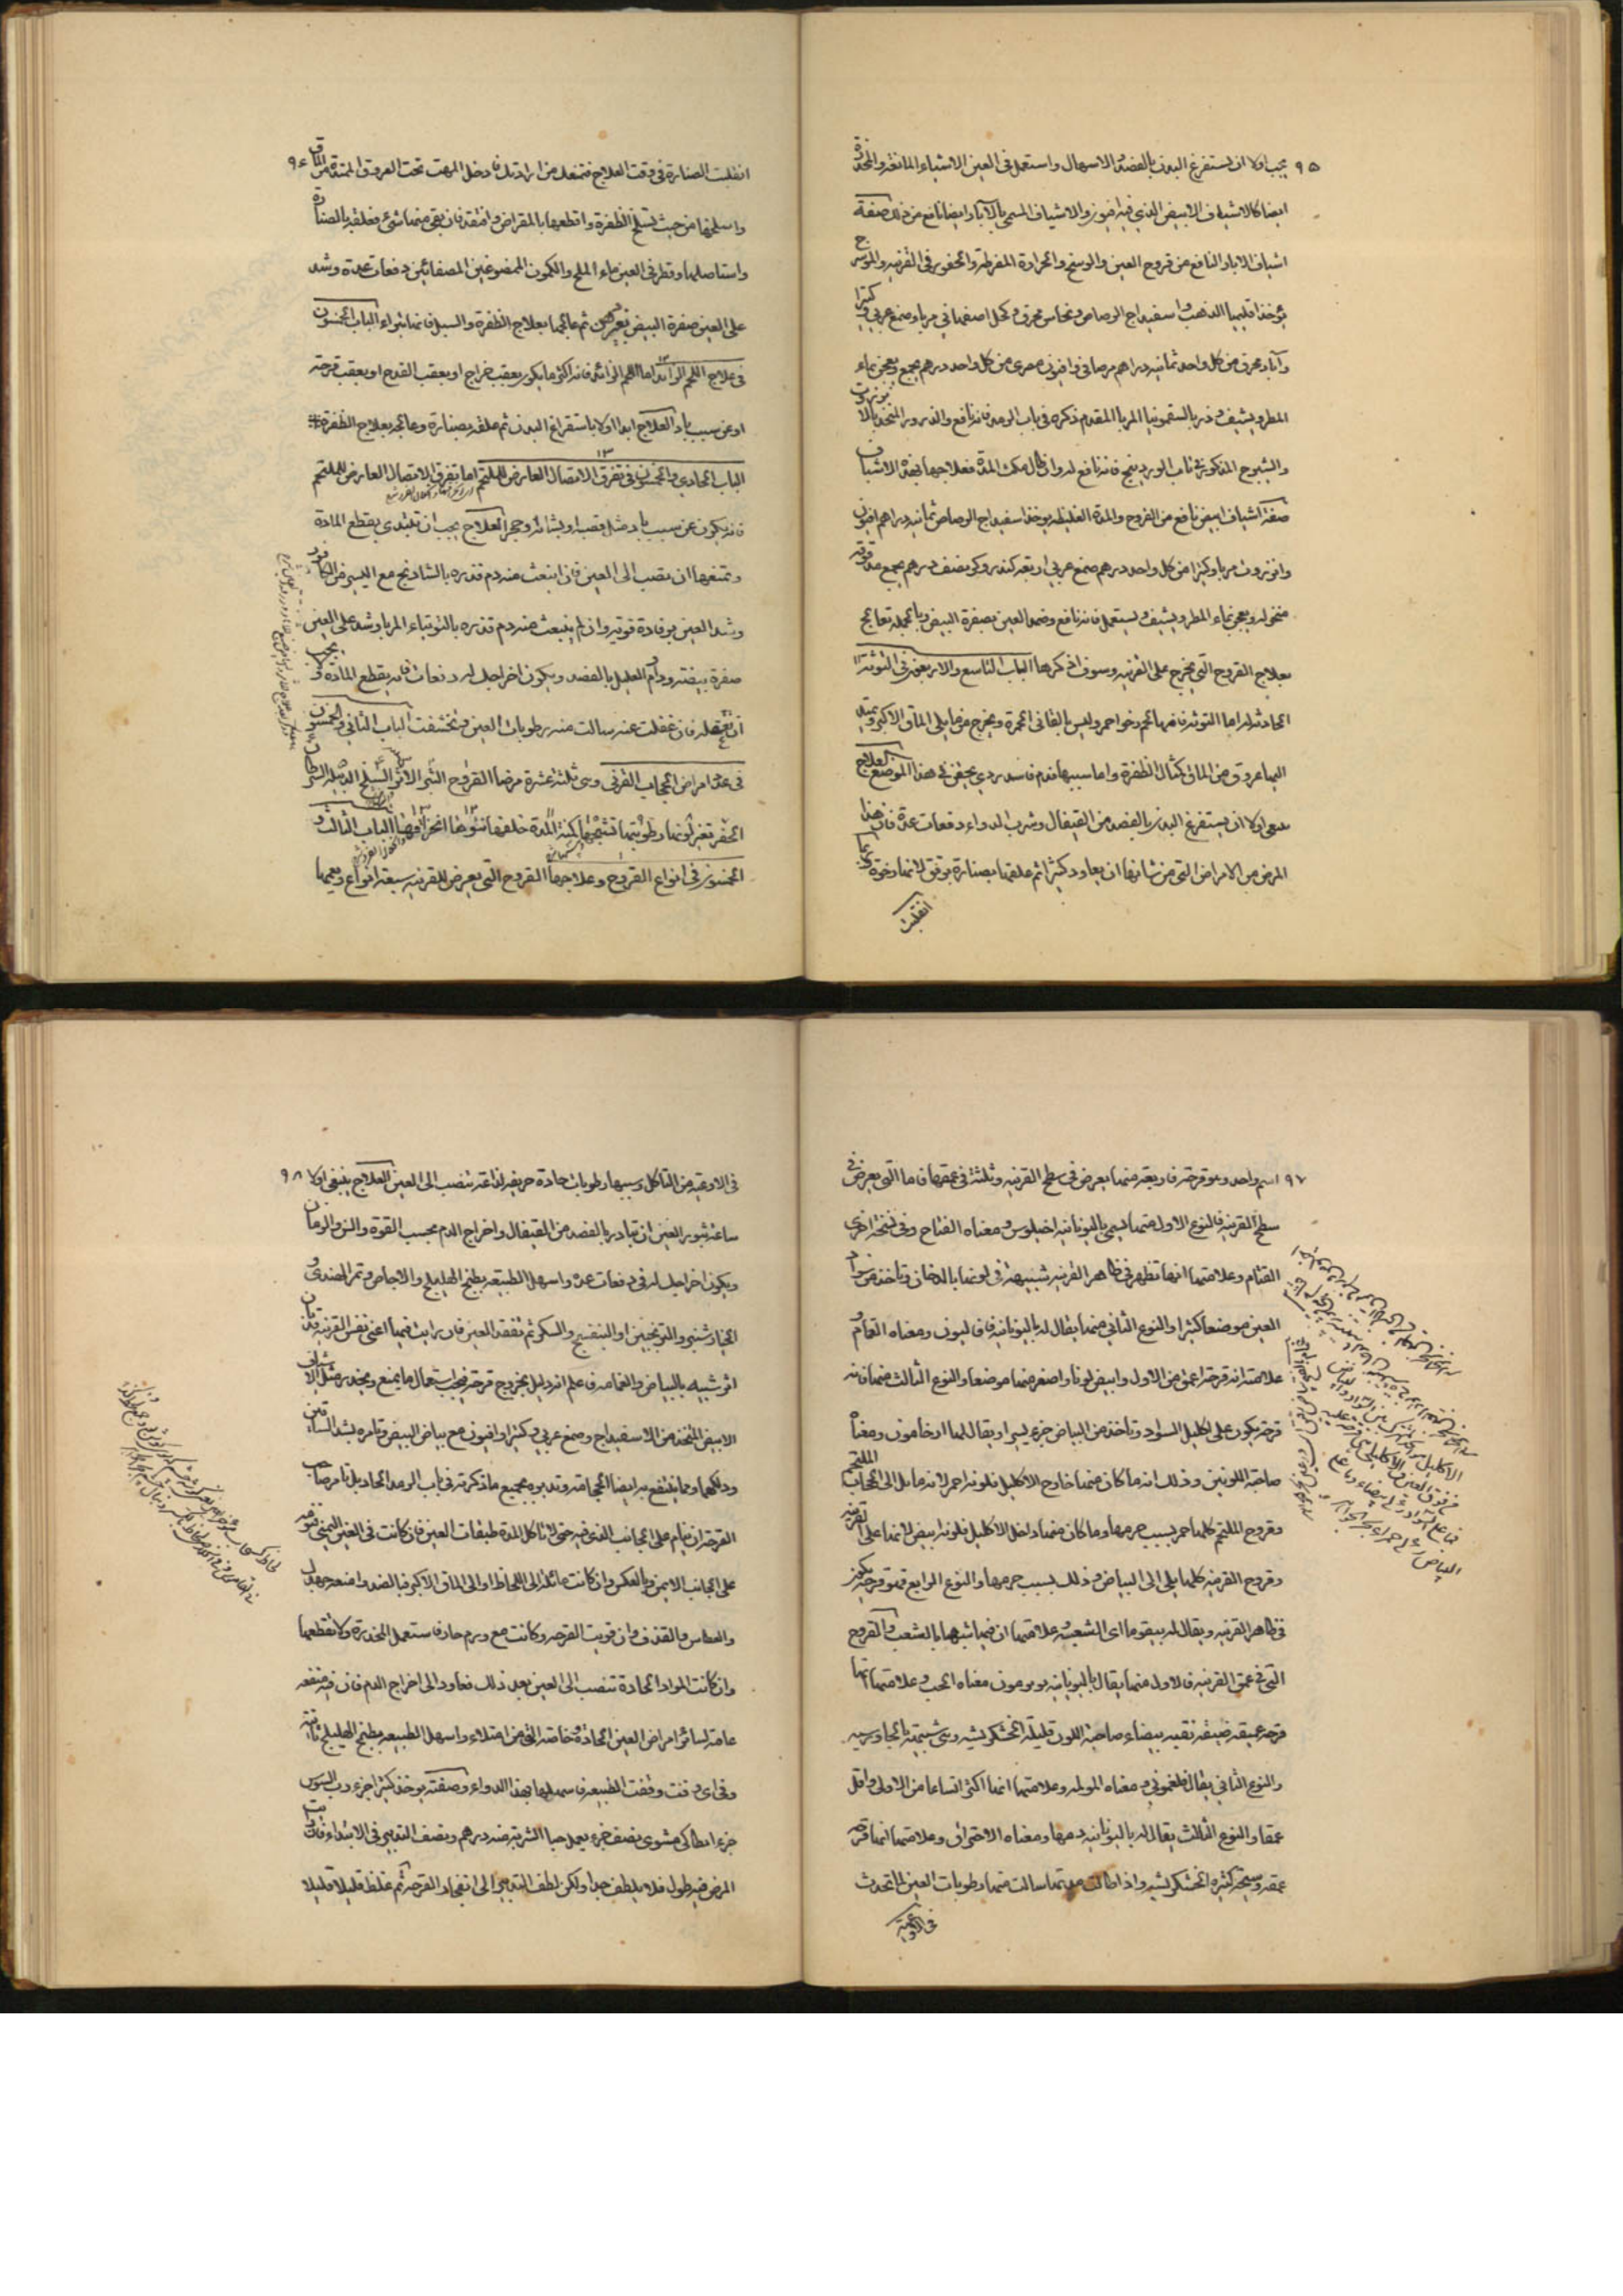 ٩٥ يجب اولا ان يستفرغ البدن بالفصد والاسهال واستعمل فى العين الاشياء المانعة والمخدرة
ايضا كالاشياف الابيض الذي فيه افيون والاشياف المسمى بالآبار وايضا نافع من ذلك صفة
اشياف الابار النافع من قروح العين والوسخ والحرارة المفرطة والحفور فى القرنيه والمورسرج
يؤخذ اقليميا الذهب واسفيداج الرصاص ونحاس محرق وكحل اصفهاني مربا وصمغ عربي وكثيرا
وآبار محرق من كل واحد ثمانيه دراهم مر صافى وافيون مصرى من كل واحد درهم يجمع ويعجن بماء
المطر ويشيف وذر بالسقمونيا المربا المقدم ذكره فى باب الرمد فانه نافع والذرور المتخذ بالانزروت
والشيح المذكور فى باب الوردينج فانه نافع له وان طال مكث المدة فعلاجها بهذه الاشياف
صفة اشياف ابيض نافع من القروح والمدة الغليظه يوخذ اسفيداج الرصاص ثمانيه دراهم افيون
وانزروت مربا وكثيرا من كل واحد درهم صمغ عربي اربعه كندر وكو نصف درهم يجمع مدقوقه
منخوله ويعجن بماء المطر ويشيف ويستعمل فانه نافع وضمد العين بصفرة البيض وبالجمله تعالج
بعلاج القروح التى تخرج على القرنيه وسوف اذكرها الباب التاسع والاربعون فى التوثة
الحادثه له اما التوثه فانها لحم رخو احمر وليس بالقانى الحمرة ويخرج مما يلى الماق الاكبر ويتصل
اليها عروق من الماق كمثال الظفرة واما سببها فدم فاسد ردي يحتقن فى هذا الموضع العلاج
ينبغى اولا ان يستفرغ البدن بالفصد من القيفال وشرب الدواء دفعات عدة فان هذا
المرض من الامراض التى من شانها ان يعاود كثيرا ثم علقها بصنارة برفق لانها رخوة ربما
انفلتت
٩٦ انفلتت الصنارة فى وقت العلاج فتمنعك من ارادتك فادخل المهت تحت العروق الممتدة من الماق
واسلخها من حيث تسلخ الظفرة واقطعها بالمقراض وافتقد فان بقى منها شئ فعلقه بالصنارة
واستاصلها وقطر فى العين ماء الملح والكمون الممضوغين المصفائين دفعات عدة وشد
على العين صفرة البيض بدهن ثم عالجها بعلاج الظفرة والسبل فانها تبراء الباب الخمسون
فى علاج اللحم الزائد اما اللحم الزائد فانه اكثر ما يكون بعقب خراج او بعقب القدح او بعقب قرحه
او عن سبب باد العلاج ابدا اولا باستفراغ البدن ثم علقه بصنارة وعالجه بعلاج الظفرة
الباب الحادي والخمسون فى تفرق الاتصال العارض للملتحم اما تفرق الاتصال العارض للملتحم
فانه يكون عن سبب باد مثل قصبه او نشابه او حجر العلاج يجب ان تبتدي بقطع المادة
وتمنعها ان تصب الى العين فان انبعث منه دم فذره بالشادنج مع اليسير من الكافور
وشد العين برفادة قويه وان لم ينبعث منه دم فذره بالتوتياء المربا وشد على العين
صفرة بيضه ودام العليل بالفصد ويكون اخراجك له دفعات فانه يقطع المادة ويجب
ان تعمله فان غفلت عنه سالت منه رطوبات العين وتخسفت الباب الثانى والخمسون
فى عدد امراض الحجاب القرنى وهى ثلثه عشرة مرضا القروح البثر الاثر السلخ الدبيله السرطان
الحفر تغير لونها رطوبتها تشنجها كمنة المدة خلفها نتوها انخراقها الباب الثالث و
الخمسون فى انواع القروح وعلاجها القروح التى يعرض للقرنيه سبعة انواع ويعمها
٩٧ اسم واحد وهو قرحه فاربعه منها يعرض فى سطح القرنيه وثلثة فى عمقها فاما التى يعرض فى
سطح القرنيه فالنوع الاول منها يسمى باليونانيه اخيلوس ومعناه الفتاح وفى نسخة اخرى
القتام وعلامتها انها تظهر فى ظاهر القرنيه شبيهة فى لونها بالدخان وتاخذ من سواد
العين موضعا كثيرا والنوع الثانى منها يقال له باليونانيه فاف ليون ومعناه الغمام و
علامته انه قرحة اعمق من الاول وابيض لونا واصغر منها موضعا والنوع الثالث منها فانه
قرحة يكون على اكليل السواد وتاخذ من البياض جزء يسيرا ويقال لها ارخامون ومعناه
صاحبة اللونين وذلك انه ما كان منها خارج الاكليل فلونه احمر لانه مائل الى الحجاب الملتحم
وقروح الملتحم كلها حمر بسبب جرمها وما كان منها داخل الاكليل فلونه ابيض لانها على القرنيه
وقروح القرنيه كلها يلى الى البياض وذلك بسبب جرمها والنوع الرابع فهو قرحة يكون
فى ظاهر القرنيه ويقال له بيقوما اى الشعبيه وعلامتها ان فيها شبها بالشعب والقروح
التى فى عمق القرنيه فالاول منها يقال باليونانيه بوبومون معناه الحب وعلامتها انها
قرحة عميقه ضيقه نقيه بيضاء صاحبة اللون قليلة الخشكريشه وهى شبيهة بالجاورسيه
والنوع الثانى يقال فلغمونى ومعناه المولمه وعلامتها انها اكثر اتساعا من الاولى واقل
عمقا والنوع الثالث يقال له باليونانيه دمها ومعناه الاحتراق وعلامتها انها قرحه
عمقه وسخه كثيره الخشكريشه واذا طالت مدتها سالت منها رطوبات العين لما تحدث
فى الاوعية
٩٨ فى الاوعيه من التاكل وسببها رطوبات حادة حريفه لذاعه تنصب الى العين العلاج ينبغى اولا
ساعة تبور العين ان تبادر بالفصد من القيفال واخراج الدم بحسب القوة والسن والزمان
ويكون اخراجك له فى دفعات عدة واسهل الطبيعه بطبيخ الهليلج والاجاص وتمر الهندى و
الخيارشنبر والترنجبين او البنفسج والسكر ثم تفقد العين فان رايت فيها اعنى نفس القرنيه قد بان
اثر شبيه بالبياض والغمامه فاعلم انه دليل بخروج قرحة فيجب استعمال ما يمنع ويخدر مثل الاشياف
الابيض المتخذ من الاسفيداج وصمغ عربي وكثيرا وافيون مع بياض البيض وتامره بشد الساقين
ودلكهما ومما ينتفع به ايضا الحجامة وتدبيره بجميع ما ذكرته فى باب الرمد الحاد بل تامر صاحب
القرحة ان ينام على الجانب الذى فيه حتى لا تاكل المدة طبقات العين فان كانت فى العين اليمنى فنومه
على الجانب الايمن وبالعكس وان كانت مائلة الى اللحاظ او الى الماق الاكبر فبالضد وامنعه جهدك
والعطاس والقذف وان قويت القرحه وكانت مع ورم حار فاستعمل المخدرة ولا تقطعها
وان كانت المواد الحادة تنصب الى العين بعد ذلك فعاود الى اخراج الدم فان فيه منفعه
عامة لسائر امراض العين الحادة وخاصة التى من امتلاء واسهل الطبيعه بطبيخ الهليلج ثانيه
وفى اى وقت وقفت الطبيعه فاسهلها بهذا الدواء وصفته يوخذ كثيرا جزء رب السوس
جزء انطاكى مشوى نصف جزء يعمل حبا الشربة منه درهم ونصف التدبير فى الابتداء فان
المرض فيه طول فلا يلطف جدا ولكن لطف التدبير الى انفجار القرحة ثم غلظ قليلا قليلا